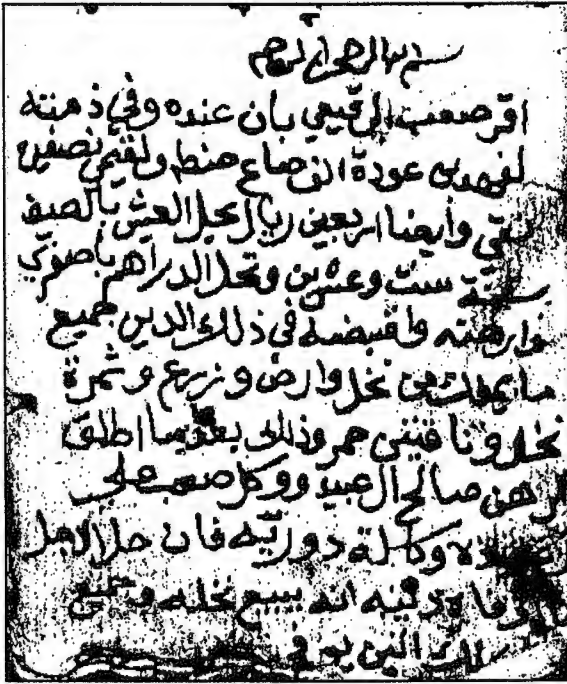 بسم الله الرحمن الرحيم
اقر صعب الرقيعي بان عنده وفي ذمته
لفهد بن عودة الف صاع حنطه ولقيمي نصفين
نقي وأيضا اربعين ريال يحل العيش بالصيف
سنة ست وعشرين وتحل الدراهم باصفري
وارهنه واقبضه في ذلك الدين جميع
ما يملك من نخل وارض وزرع وثمرة
نخل وناقتين حمر وذلك بعد ما اطلق
الرهن صالح ال عبيد ووكل صعب علي
وكالة دوريه فان حل الاجل
انه يبيع نخله وجميع
الذي